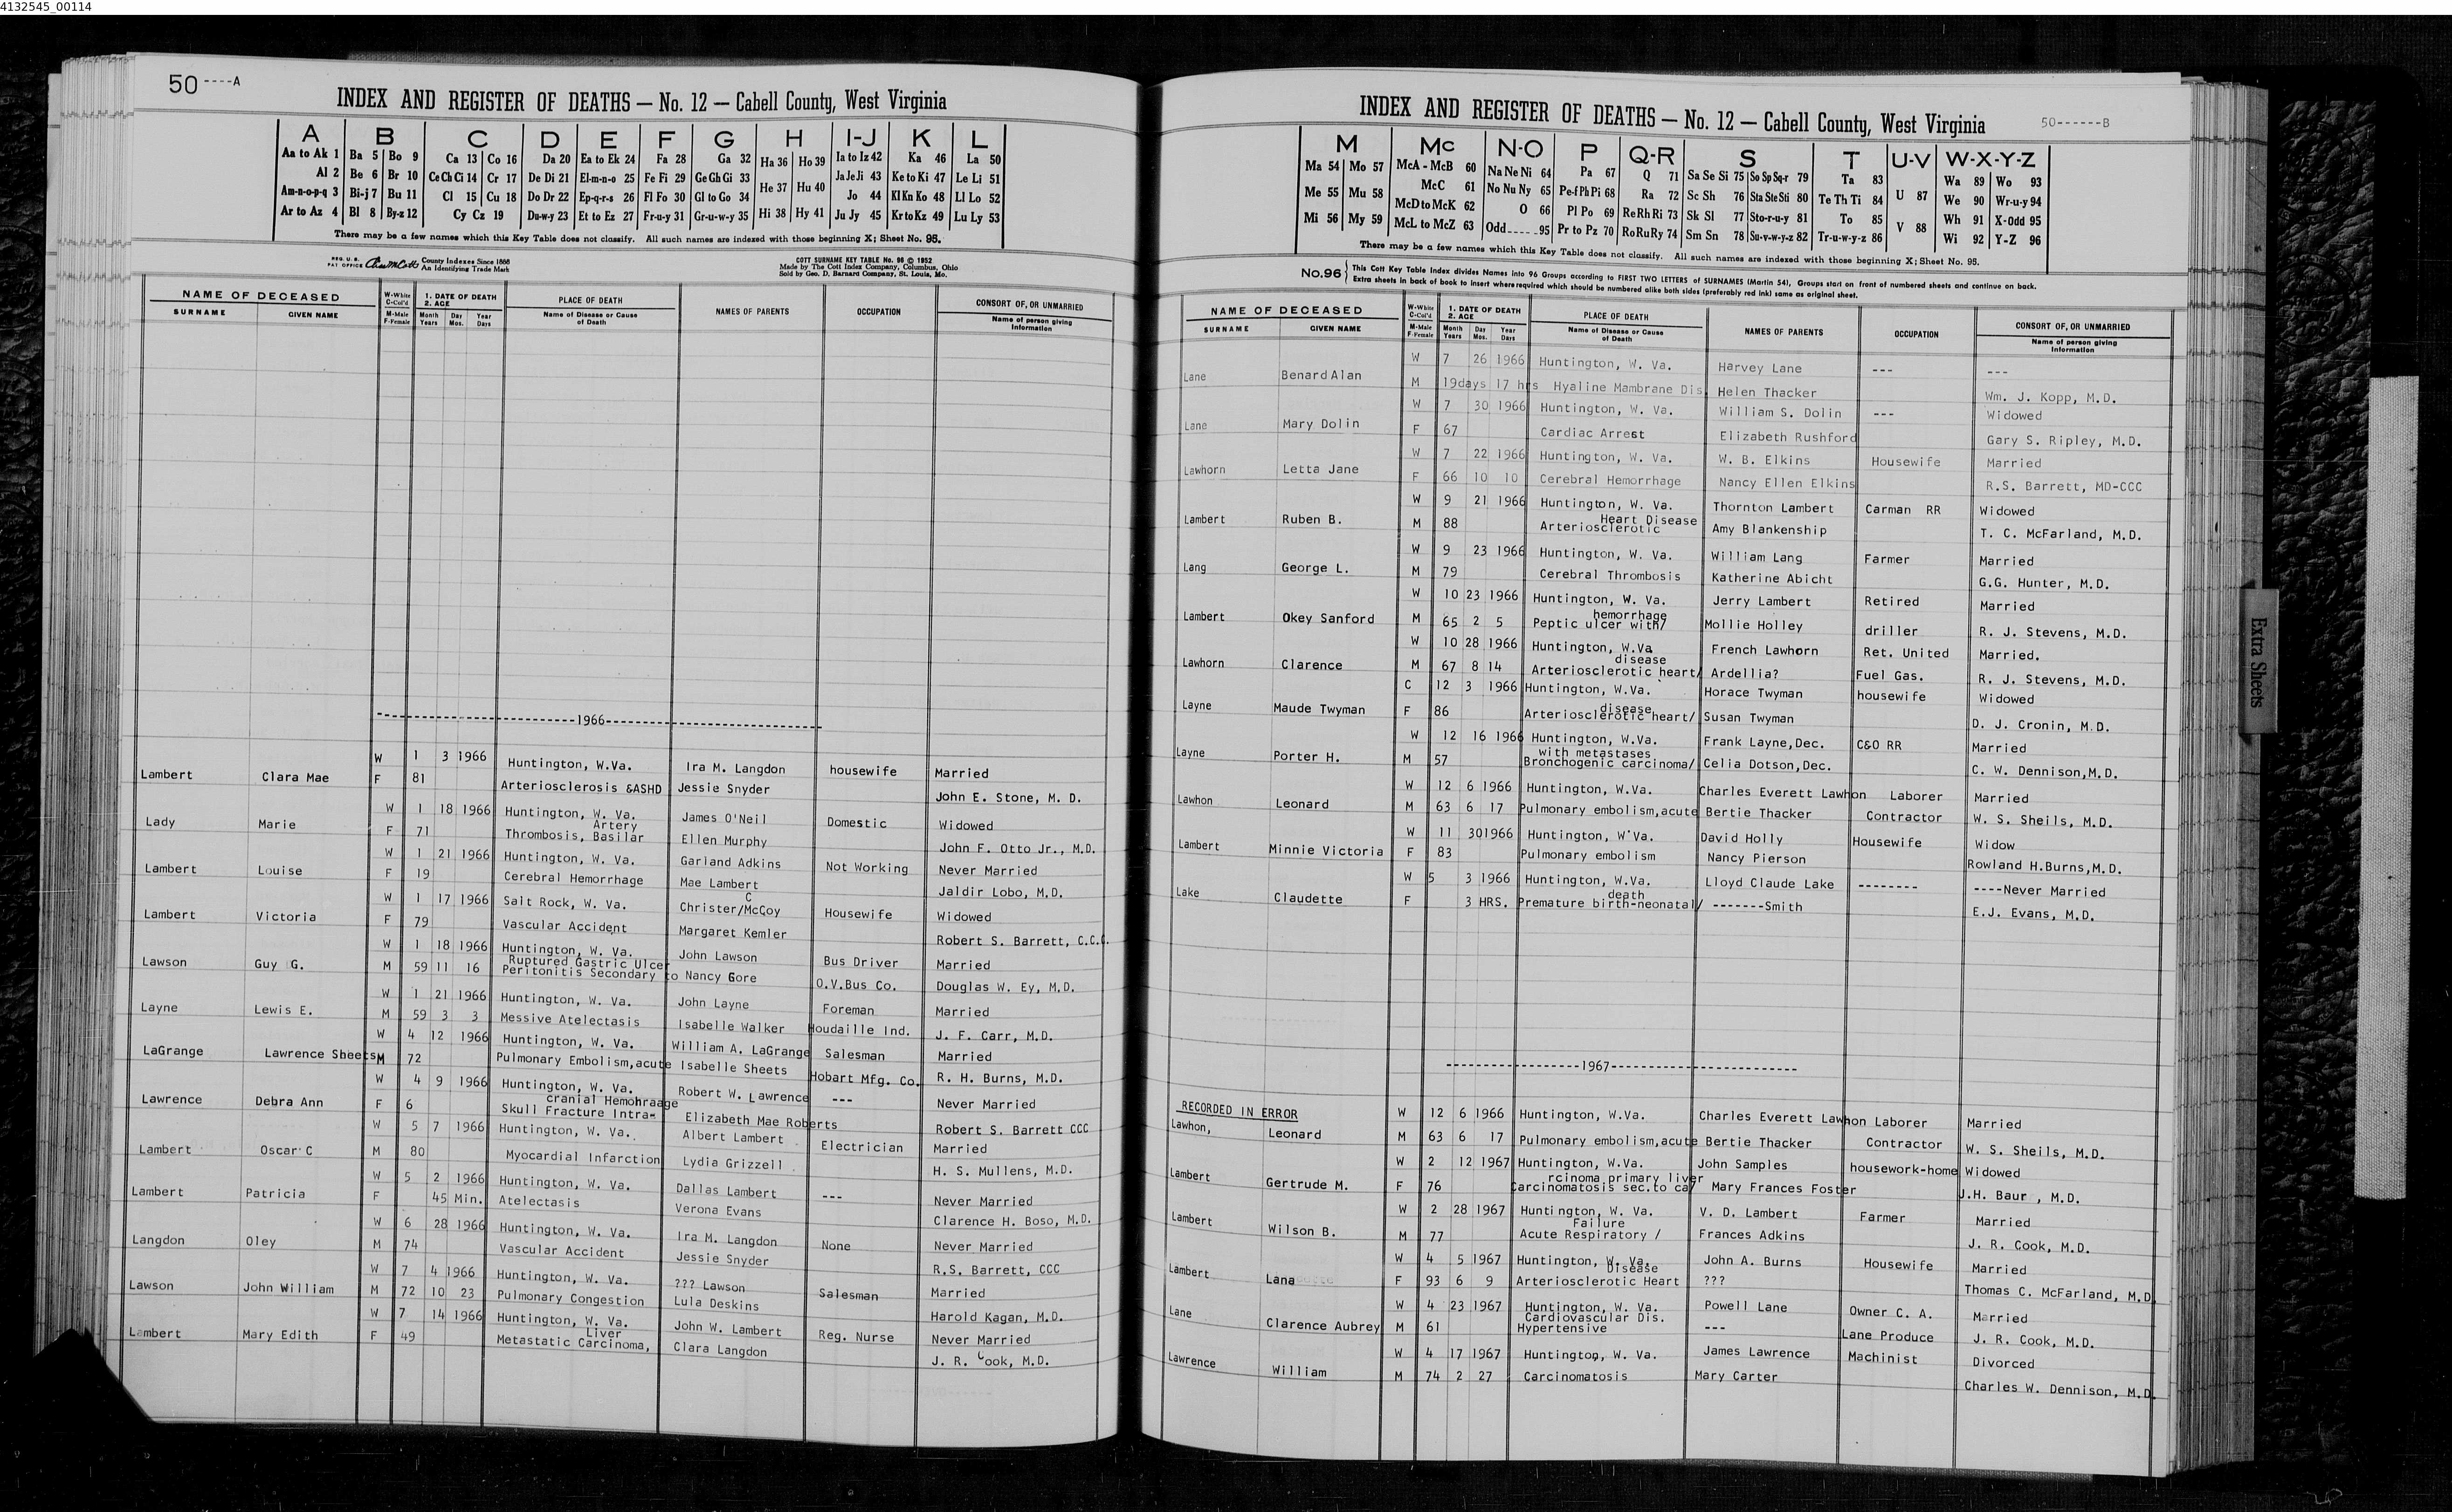 4132545_00114
50 ----A
INDEX AND REGISTER OF DEATHS — No. 12 — Cabell County, West Virginia
A B C D E F G H I-J K L
Aa to Ak 1 Ba 5 Bo 9 Ca 13 Co 16 Da 20 Ea to Ek 24 Fa 28 Ga 32 Ha 36 Ho 39 Ia to Iz 42 Ka 46 La 50
Al 2 Be 6 Br 10 Ce Ch Ci 14 Cr 17 De Di 21 El-m-n-o 25 Fe Fi 29 Ge Gh Gi 33 He 37 Hu 40 Ja Je Ji 43 Ke to Ki 47 Le Li 51
Am-n-o-p-q 3 Bi-j 7 Bu 11 Cl 15 Cu 18 Do Dr 22 Ep-q-r-s 26 Fl Fo 30 Gl to Go 34 Jo 44 Kl Kn Ko 48 Ll Lo 52
Ar to Az 4 Bl 8 By-z 12 Cy Cz 19 Du-w-y 23 Et to Ez 27 Fr-u-y 31 Gr-u-w-y 35 Hi 38 Hy 41 Ju Jy 45 Kr to Kz 49 Lu Ly 53
There may be a few names which this Key Table does not classify. All such names are indexed with those beginning X; Sheet No. 95.
REG. U.S. PAT. OFFICE County Indexes Since 1888
An Identifying Trade Mark
COTT SURNAME KEY TABLE No. 96 © 1952
Made by The Cott Index Company, Columbus, Ohio
Sold by Geo. D. Barnard Company, St. Louis, Mo.
NAME OF DECEASED W-White C-Col'd 1. DATE OF DEATH 2. AGE PLACE OF DEATH NAMES OF PARENTS OCCUPATION CONSORT OF, OR UNMARRIED
SURNAME GIVEN NAME M-Male F-Female Month Years Day Mos. Year Days Name of Disease or Cause of Death Name of person giving Information
----1966----
W 1 3 1966 Huntington, W.Va. Ira M. Langdon housewife Married
Lambert Clara Mae F 81 Arteriosclerosis &ASHD Jessie Snyder John E. Stone, M. D.
W 1 18 1966 Huntington, W. Va. James O'Neil Domestic Widowed
Artery
Lady Marie F 71 Thrombosis, Basilar Ellen Murphy John F. Otto Jr., M.D.
W 1 21 1966 Huntington, W. Va. Garland Adkins Not Working Never Married
Lambert Louise F 19 Cerebral Hemorrhage Mae Lambert Jaldir Lobo, M.D.
C
W 1 17 1966 Salt Rock, W. Va. Christer/McCoy Housewife Widowed
Lambert Victoria F 79 Vascular Accident Margaret Kemler Robert S. Barrett, C.C.C.
W 1 18 1966 Huntington, W. Va. John Lawson Bus Driver Married
Ruptured Gastric Ulcer
Lawson Guy G. M 59 11 16 Peritonitis Secondary to Nancy Gore O.V.Bus Co. Douglas W. Ey, M.D.
W 1 21 1966 Huntington, W. Va. John Layne Foreman Married
Layne Lewis E. M 59 3 3 Messive Atelectasis Isabelle Walker Houdaille Ind. J. F. Carr, M.D.
W 4 12 1966 Huntington, W. Va. William A. LaGrange Salesman Married
LaGrange Lawrence Sheets M 72 Pulmonary Embolism,acute Isabelle Sheets Hobart Mfg. Co. R. H. Burns, M.D.
W 4 9 1966 Huntington, W. Va. Robert W. Lawrence --- Never Married
cranial Hemohraage
Lawrence Debra Ann F 6 Skull Fracture Intra- Elizabeth Mae Roberts Robert S. Barrett CCC
W 5 7 1966 Huntington, W. Va. Albert Lambert Electrician Married
Lambert Oscar C M 80 Myocardial Infarction Lydia Grizzell H. S. Mullens, M.D.
W 5 2 1966 Huntington, W. Va. Dallas Lambert --- Never Married
Lambert Patricia F 45 Min. Atelectasis Verona Evans Clarence H. Boso, M.D.
W 6 28 1966 Huntington, W. Va. Ira M. Langdon None Never Married
Langdon Oley M 74 Vascular Accident Jessie Snyder R.S. Barrett, CCC
W 7 4 1966 Huntington, W. Va. ??? Lawson Salesman Married
Lawson John William M 72 10 23 Pulmonary Congestion Lula Deskins Harold Kagan, M.D.
W 7 14 1966 Huntington, W. Va. John W. Lambert Reg. Nurse Never Married
Liver
Lambert Mary Edith F 49 Metastatic Carcinoma, Clara Langdon J. R. Cook, M.D.
INDEX AND REGISTER OF DEATHS — No. 12 — Cabell County, West Virginia 50------B
M Mc N-O P Q-R S T U-V W-X-Y-Z
Ma 54 Mo 57 McA - McB 60 Na Ne Ni 64 Pa 67 Q 71 Sa Se Si 75 So Sp Sq-r 79 Ta 83 Wa 89 Wo 93
Me 55 Mu 58 McC 61 No Nu Ny 65 Pe-f Ph Pi 68 Ra 72 Sc Sh 76 Sta Ste Sti 80 Te Th Ti 84 U 87 We 90 Wr-u-y 94
McD to McK 62 O 66 Pl Po 69 Re Rh Ri 73 Sk Sl 77 Sto-r-u-y 81 To 85 Wh 91 X-Odd 95
Mi 56 My 59 McL to McZ 63 Odd 95 Pr to Pz 70 Ro Ru Ry 74 Sm Sn 78 Su-v-w-y-z 82 Tr-u-w-y-z 86 V 88 Wi 92 Y-Z 96
There may be a few names which this Key Table does not classify. All such names are indexed with those beginning X; Sheet No. 95.
No.96 This Cott Key Table Index divides Names into 96 Groups according to FIRST TWO LETTERS of SURNAMES (Martin 54), Groups start on front of numbered sheets and continue on back.
Extra sheets in back of book to insert where required which should be numbered alike both sides (preferably red ink) same as original sheet.
NAME OF DECEASED W-White C-Col'd 1. DATE OF DEATH 2. AGE PLACE OF DEATH NAMES OF PARENTS OCCUPATION CONSORT OF, OR UNMARRIED
SURNAME GIVEN NAME M-Male F-Female Month Years Day Mos. Year Days Name of Disease or Cause of Death Name of person giving Information
W 7 26 1966 Huntington, W. Va. Harvey Lane --- ---
Lane Benard Alan M 19days 17 hrs Hyaline Mambrane Dis. Helen Thacker Wm. J. Kopp, M.D.
W 7 30 1966 Huntington, W. Va. William S. Dolin --- Widowed
Lane Mary Dolin F 67 Cardiac Arrest Elizabeth Rushford Gary S. Ripley, M.D.
W 7 22 1966 Huntington, W. Va. W. B. Elkins Housewife Married
Lawhorn Letta Jane F 66 10 10 Cerebral Hemorrhage Nancy Ellen Elkins R.S. Barrett, MD-CCC
W 9 21 1966 Huntington, W. Va. Thornton Lambert Carman RR Widowed
Heart Disease
Lambert Ruben B. M 88 Arteriosclerotic Amy Blankenship T. C. McFarland, M.D.
W 9 23 1966 Huntington, W. Va. William Lang Farmer Married
Lang George L. M 79 Cerebral Thrombosis Katherine Abicht G.G. Hunter, M.D.
W 10 23 1966 Huntington, W. Va. Jerry Lambert Retired Married
hemorrhage
Lambert Okey Sanford M 65 2 5 Peptic ulcer with/ Mollie Holley driller R. J. Stevens, M.D.
W 10 28 1966 Huntington, W.Va French Lawhorn Ret. United Married.
disease
Lawhorn Clarence M 67 8 14 Arteriosclerotic heart/ Ardellia? Fuel Gas. R. J. Stevens, M.D.
C 12 3 1966 Huntington, W.Va. Horace Twyman housewife Widowed
disease
Layne Maude Twyman F 86 Arteriosclerotic heart/ Susan Twyman D. J. Cronin, M.D.
W 12 16 1966 Huntington, W.Va. Frank Layne,Dec. C&O RR Married
with metastases
Layne Porter H. M 57 Bronchogenic carcinoma/ Celia Dotson,Dec. C. W. Dennison,M.D.
W 12 6 1966 Huntington, W.Va. Charles Everett Lawhon Laborer Married
Lawhon Leonard M 63 6 17 Pulmonary embolism,acute Bertie Thacker Contractor W. S. Sheils, M.D.
W 11 301966 Huntington, W'Va. David Holly Housewife Widow
Lambert Minnie Victoria F 83 Pulmonary embolism Nancy Pierson Rowland H.Burns,M.D.
W 5 3 1966 Huntington, W.Va. Lloyd Claude Lake -------- ----Never Married
death
Lake Claudette F 3 HRS. Premature birth-neonatal/ -------Smith E.J. Evans, M.D.
----1967----
RECORDED IN ERROR W 12 6 1966 Huntington, W.Va. Charles Everett Lawhon Laborer Married
Lawhon, Leonard M 63 6 17 Pulmonary embolism,acute Bertie Thacker Contractor W. S. Sheils, M.D.
W 2 12 1967 Huntington, W.Va. John Samples housework-home Widowed
rcinoma primary liver
Lambert Gertrude M. F 76 Carcinomatosis sec.to ca/ Mary Frances Foster J.H. Baur , M.D.
W 2 28 1967 Huntington, W. Va. V. D. Lambert Farmer Married
Failure
Lambert Wilson B. M 77 Acute Respiratory / Frances Adkins J. R. Cook, M.D.
W 4 5 1967 Huntington, W. Va. John A. Burns Housewife Married
Disease
Lambert Lana F 93 6 9 Arteriosclerotic Heart ??? Thomas C. McFarland, M.D.
W 4 23 1967 Huntington, W. Va. Powell Lane Owner C. A. Married
Cardiovascular Dis.
Lane Clarence Aubrey M 61 Hypertensive --- Lane Produce J. R. Cook, M.D.
W 4 17 1967 Huntington, W. Va. James Lawrence Machinist Divorced
Lawrence William M 74 2 27 Carcinomatosis Mary Carter Charles W. Dennison, M.D.
Extra Sheets